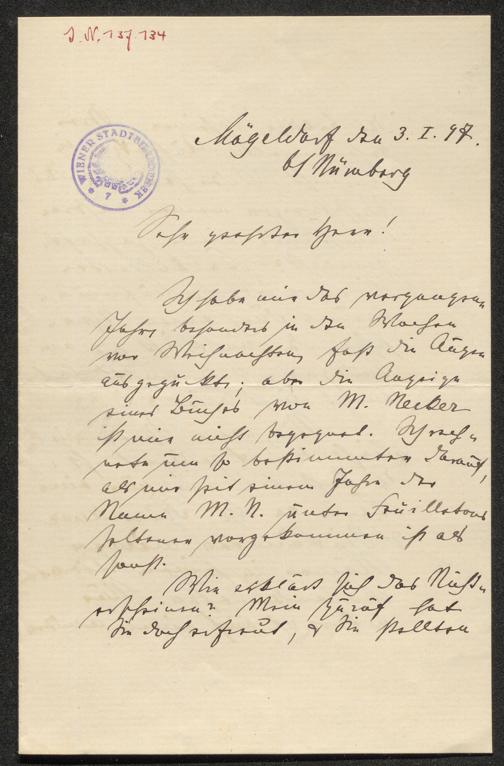 J.N. 137.134
WIENER STADTBIBLIOTHEK
Mögeldorf den 3. I. 97.
b/ Nürnberg
Sehr geehrter Herr!
Ich habe mir das vergangene
Jahr, besonders in den Wochen
vor Weihnachten, fast die Augen
ausgeguckt; aber die Anzeige
eines Buches von M. Necker
ist mir nicht begegnet. Ich rech-
nete um so bestimmter darauf,
als mir seit einem Jahre der
Name M. N. unter Feuilletons
seltener vorgekommen ist als
sonst.
Wie erklärt sich das Nicht-
erscheinen? Mein Zuruf hat
Sie doch erfreut, & Sie stellten